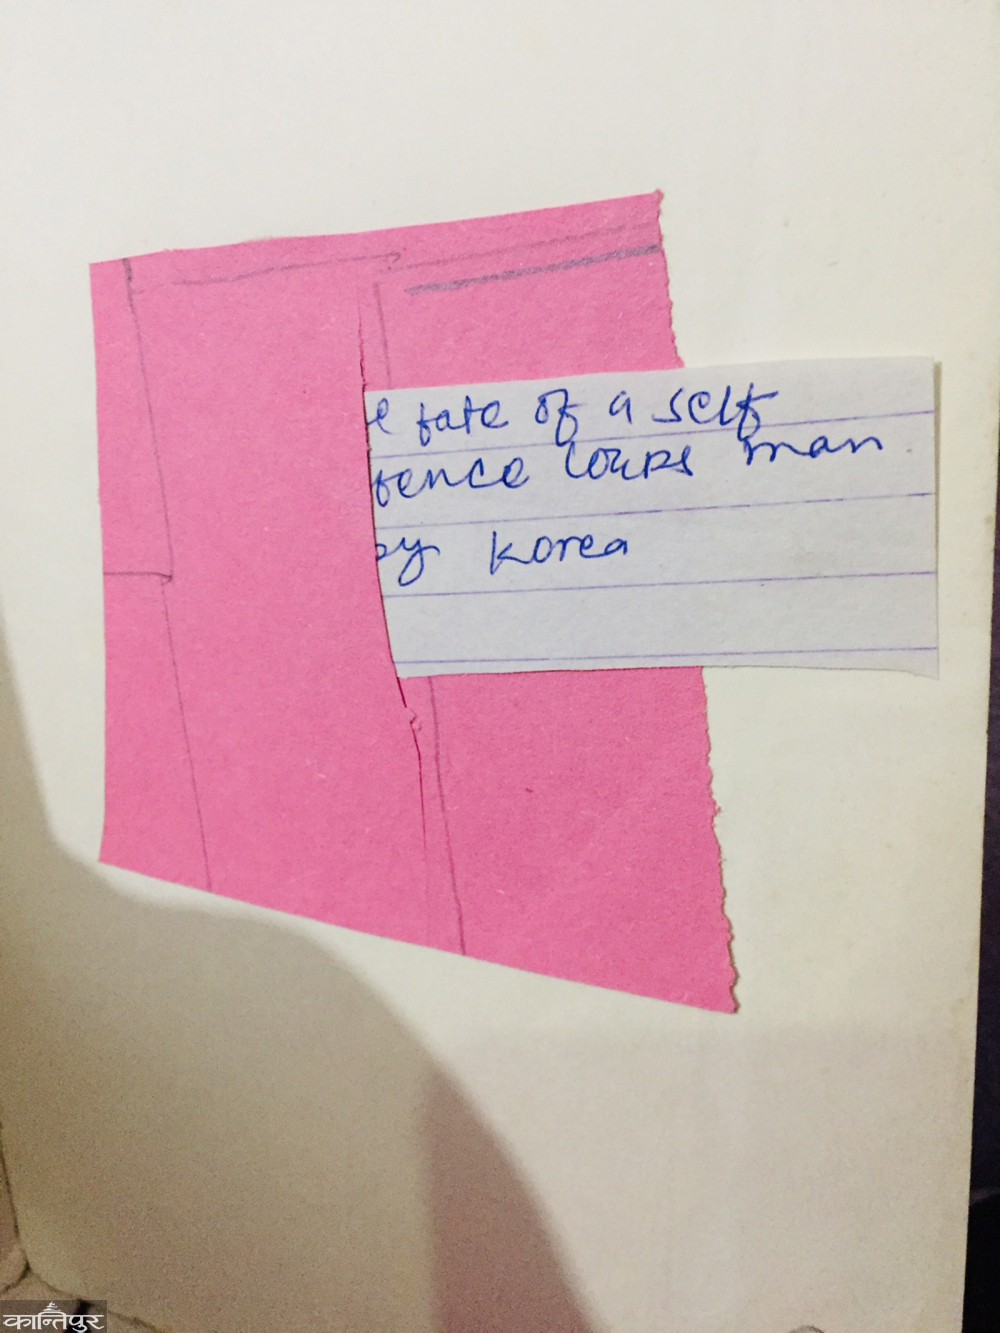 e fate of a self
fence corps man
by korea
कान्तिपुर